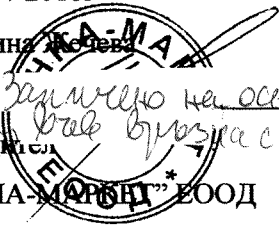 ина Жечева
Заличено на осн
във връзка с
ител
НА-МАРКЕТ" ЕООД
ЕООД *